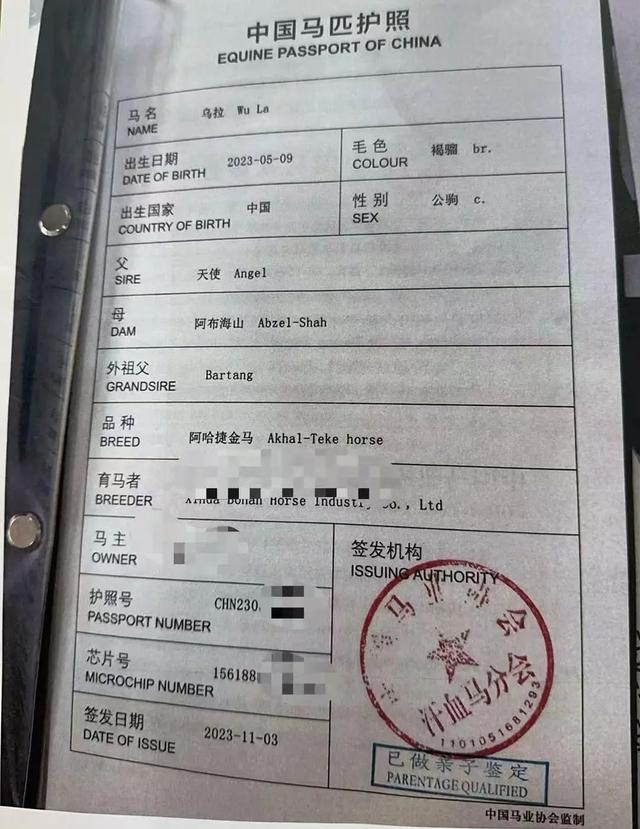 中国马匹护照
EQUINE PASSPORT OF CHINA
马名 乌拉 Wu La
NAME
出生日期 2023-05-09 毛色 褐骝 br.
DATE OF BIRTH COLOUR
出生国家 中国 性别 公驹 c.
COUNTRY OF BIRTH SEX
父 天使 Angel
SIRE
母 阿布海山 Abzel-Shah
DAM
外祖父 Bartang
GRANDSIRE
品种 阿哈捷金马 Akhal-Teke horse
BREED
育马者
BREEDER Bohan Horse Co., Ltd
马主 签发机构
OWNER ISSUING AUTHORITY
护照号 CHN230
PASSPORT NUMBER
芯片号 156188
MICROCHIP NUMBER
签发日期 2023-11-03
DATE OF ISSUE
马业协会
汗血马分会
1101051681293
已做亲子鉴定
PARENTAGE QUALIFIED
中国马业协会监制